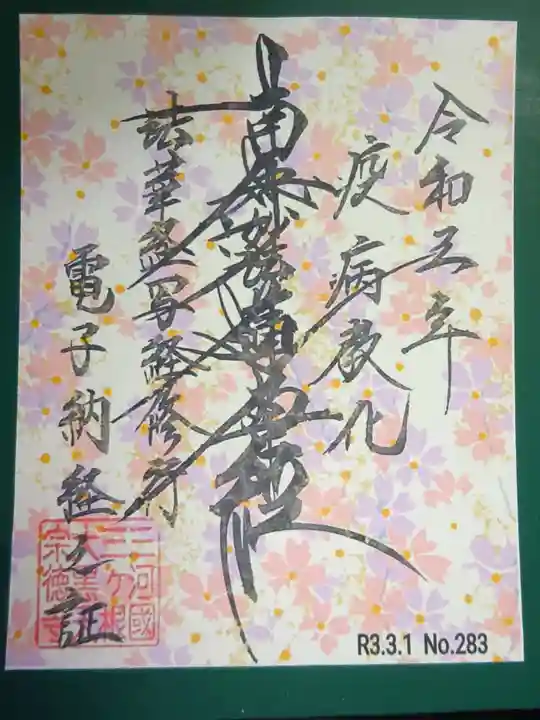 令和五年
疫病教化
南無妙法蓮華経
法華経写経修行
電子納経之証
三河國
三ヶ根
大黒
宗徳寺
R3.3.1 No.283